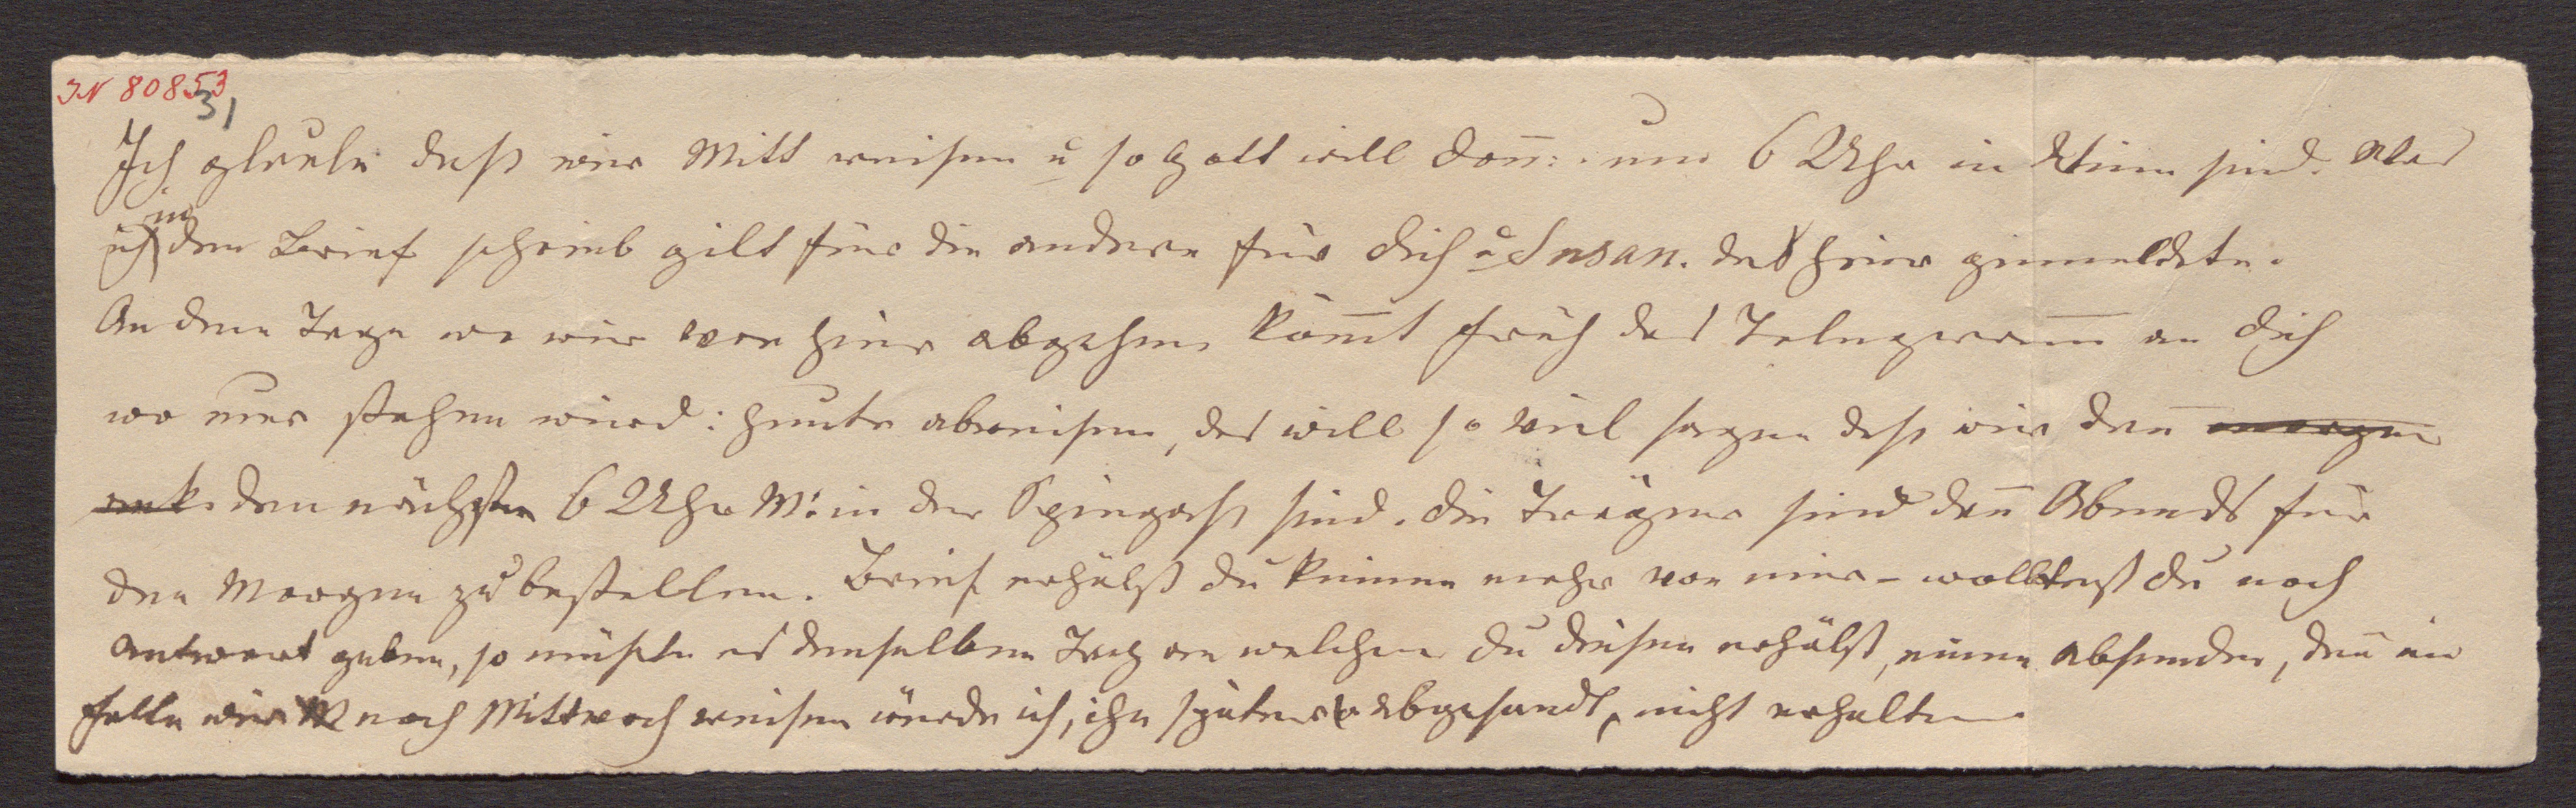 IN 80853
31
Ich glaube daß wir Mitt reisen u so Gott will Don̅: um 6 Uhr in Wien sind. Was
ich in dem Brief schrieb gilt für die andern für dich u Susan. das hier gemeldete.
An dem Tage wo wir von hier abgehen kom̅t früh das Telegram̅ an dich
wo nur stehen wird: heute abreisen, das will so viel sagen daß wir dan̅ morgen
den nächsten 6 Uhr M: in der Spiegelg sind. die Träger sind dan̅ Abends für
den Morgen zu bestellen. Brief erhälst du keinen mehr von mir – wolltest du noch
Antwort geben, so müßte es denselben Tag an welchem du diesen erhälst, einen absenden, den̅ im
falle wir noch Mittwoch reisen würde ich, ihn später abgesandt, nicht erhalten